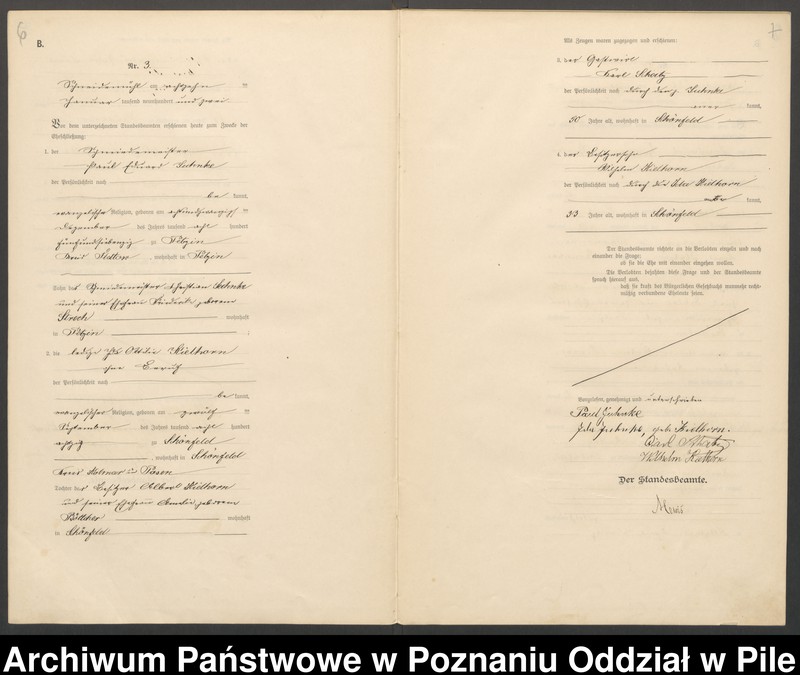 6
B.
Nr. 3.
Schneidemühl am achtzehn ten
Januar tausend neunhundert und zwei
Vor dem unterzeichneten Standesbeamten erschienen heute zum Zweck der
Eheschließung:
1. der Schmiedemeister
Paul Eduard
der Persönlichkeit nach
be kannt,
evangelischer Religion, geboren am
Dezember des Jahres tausend acht hundert
fünfundsiebenzig zu
Kreis , wohnhaft in
Sohn des Schmiedemeister Christian
und seiner Ehefrau geborene
wohnhaft
in
2. die ledige Ida Ottilie Kielhorn
ohne Beruf
der Persönlichkeit nach
be kannt,
evangelischer Religion, geboren am zwölf ten
September des Jahres tausend acht hundert
achtzig zu Schönfeld
, wohnhaft in Schönfeld
Kreis Kolmar in Posen
Tochter des Besitzer Albert Kielhorn
und seiner Ehefrau geborene
Böttcher wohnhaft
in Schönfeld
7
Als Zeugen waren zugezogen und erschienen:
3. der Gastwirt
Karl
der Persönlichkeit nach durch
kannt,
50 Jahre alt, wohnhaft in Schönfeld
4. der Besitzersohn
Wilhelm Kielhorn
der Persönlichkeit nach durch die Ida Kielhorn
kannt,
33 Jahre alt, wohnhaft in Schönfeld
Der Standesbeamte richtete an die Verlobten einzeln und nach
einander die Frage:
ob sie die Ehe mit einander eingehen wollen.
Die Verlobten bejahten diese Frage und der Standesbeamte
sprach hierauf aus,
daß sie kraft des Bürgerlichen Gesetzbuchs nunmehr recht-
mäßig verbundene Eheleute seien.
Vorgelesen, genehmigt und unterschrieben
Paul
Ida geb. Kielhorn.
Carl
Wilhelm Kielhorn
Der Standesbeamte.
Archiwum Państwowe w Poznaniu Oddział w Pile